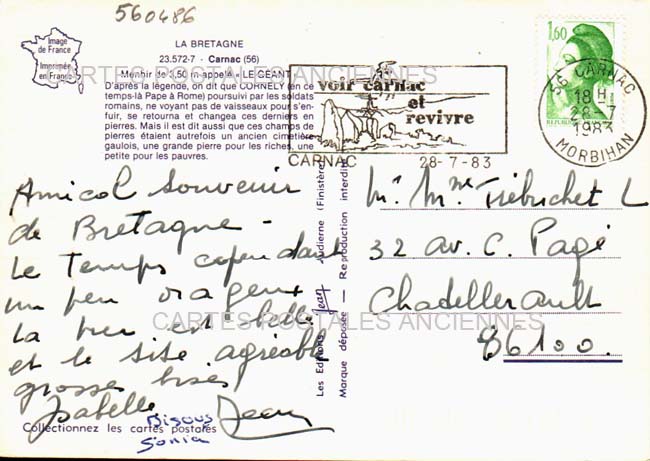 560486
Image
de France
Imprimée
en France
LA BRETAGNE
23.572-7 - Carnac (56)
Menhir de 3,50 m appelé « LE GEANT »
D'après la légende, on dit que CORNELY (en ce
temps-là Pape à Rome) poursuivi par les soldats
romains, ne voyant pas de vaisseaux pour s'en-
fuir, se retourna et changea ces derniers en
pierres. Mais il est dit aussi que ces champs de
pierres étaient autrefois un ancien cimetière
gaulois, une grande pierre pour les riches, une
petite pour les pauvres.
voir carnac
et
revivre
CARNAC 28-7-83
1,60
REPUBLIQUE
56 CARNAC
18 H
28-7
1983
MORBIHAN
CARTES POSTALES ANCIENNES
Amical souvenir
de Bretagne -
Le temps cependant
un peu orageux
la mer est belle
et le site agréable
grosses bises!
Isabelle Jean
Bisous
Sonia
Collectionnez les cartes postales
Les Editions Jean Audierne (Finistère)
Marque déposée — Reproduction interdite
Mr Mme Trébuchet L
32 av. C. Pagé
Chatellerault
86100.
CARTES POSTALES ANCIENNES